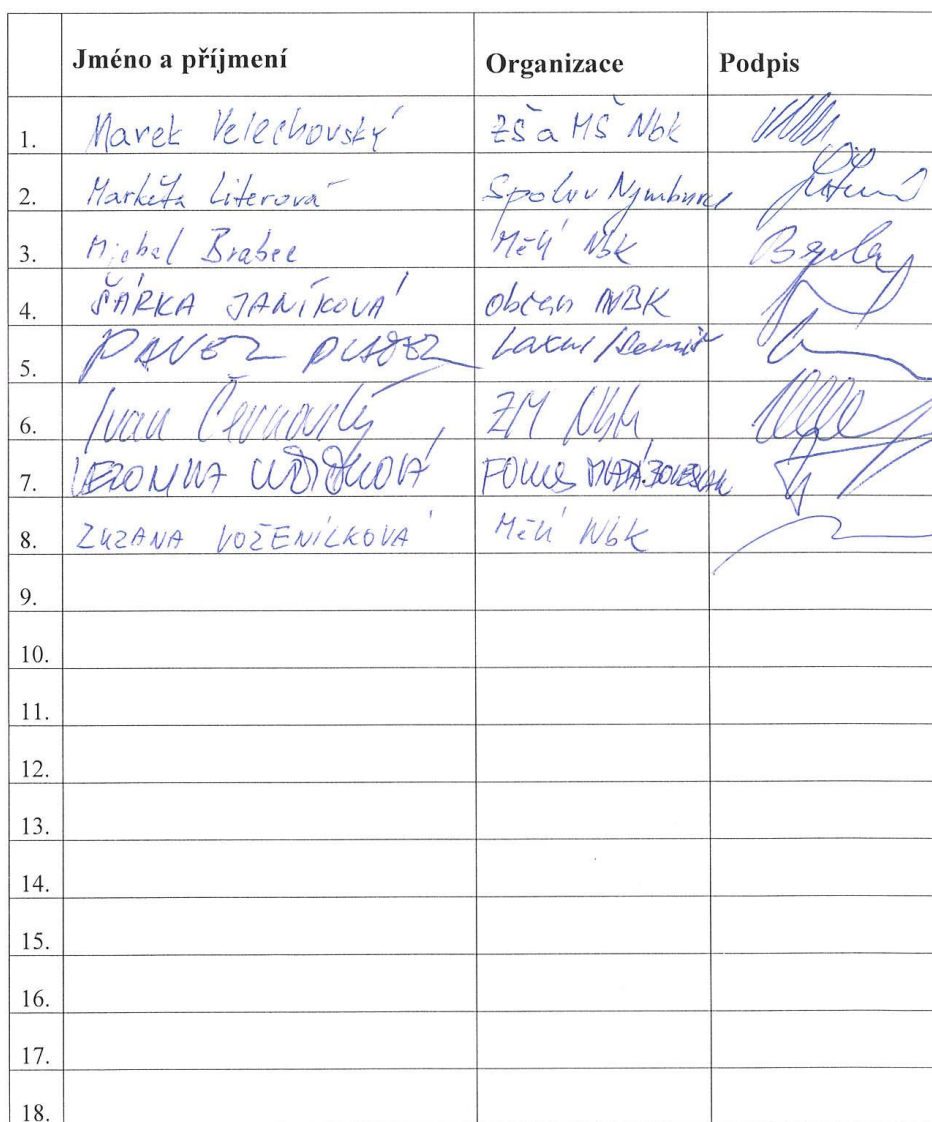 Jméno a příjmení Organizace Podpis
1. Marek Velechovský ZŠ a MŠ Nbk
2. Markéta Literová Spolu v Nymburce
3. Michal Brabec MěÚ Nbk
4. ŠÁRKA JANÍKOVÁ občan NBK
5. PAVEL
6. Ivan Černovský ZM Nbk
7. VERONIKA FOKUS MLADÁ BOLESLAV
8. ZUZANA VOŽENÍLKOVÁ MěÚ Nbk
9.
10.
11.
12.
13.
14.
15.
16.
17.
18.